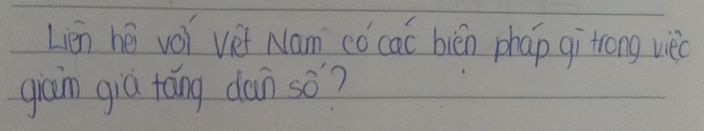 Liên hệ với Việt Nam có các biện pháp gì trong việc
giảm gia tăng dân số?